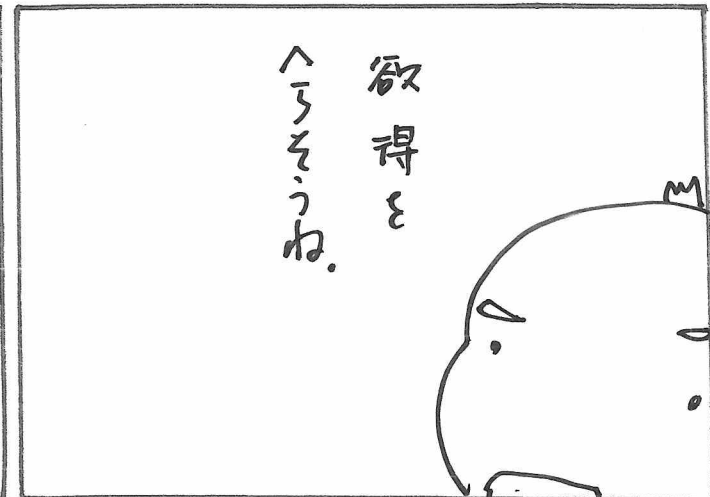 欲得を
へらそうね.